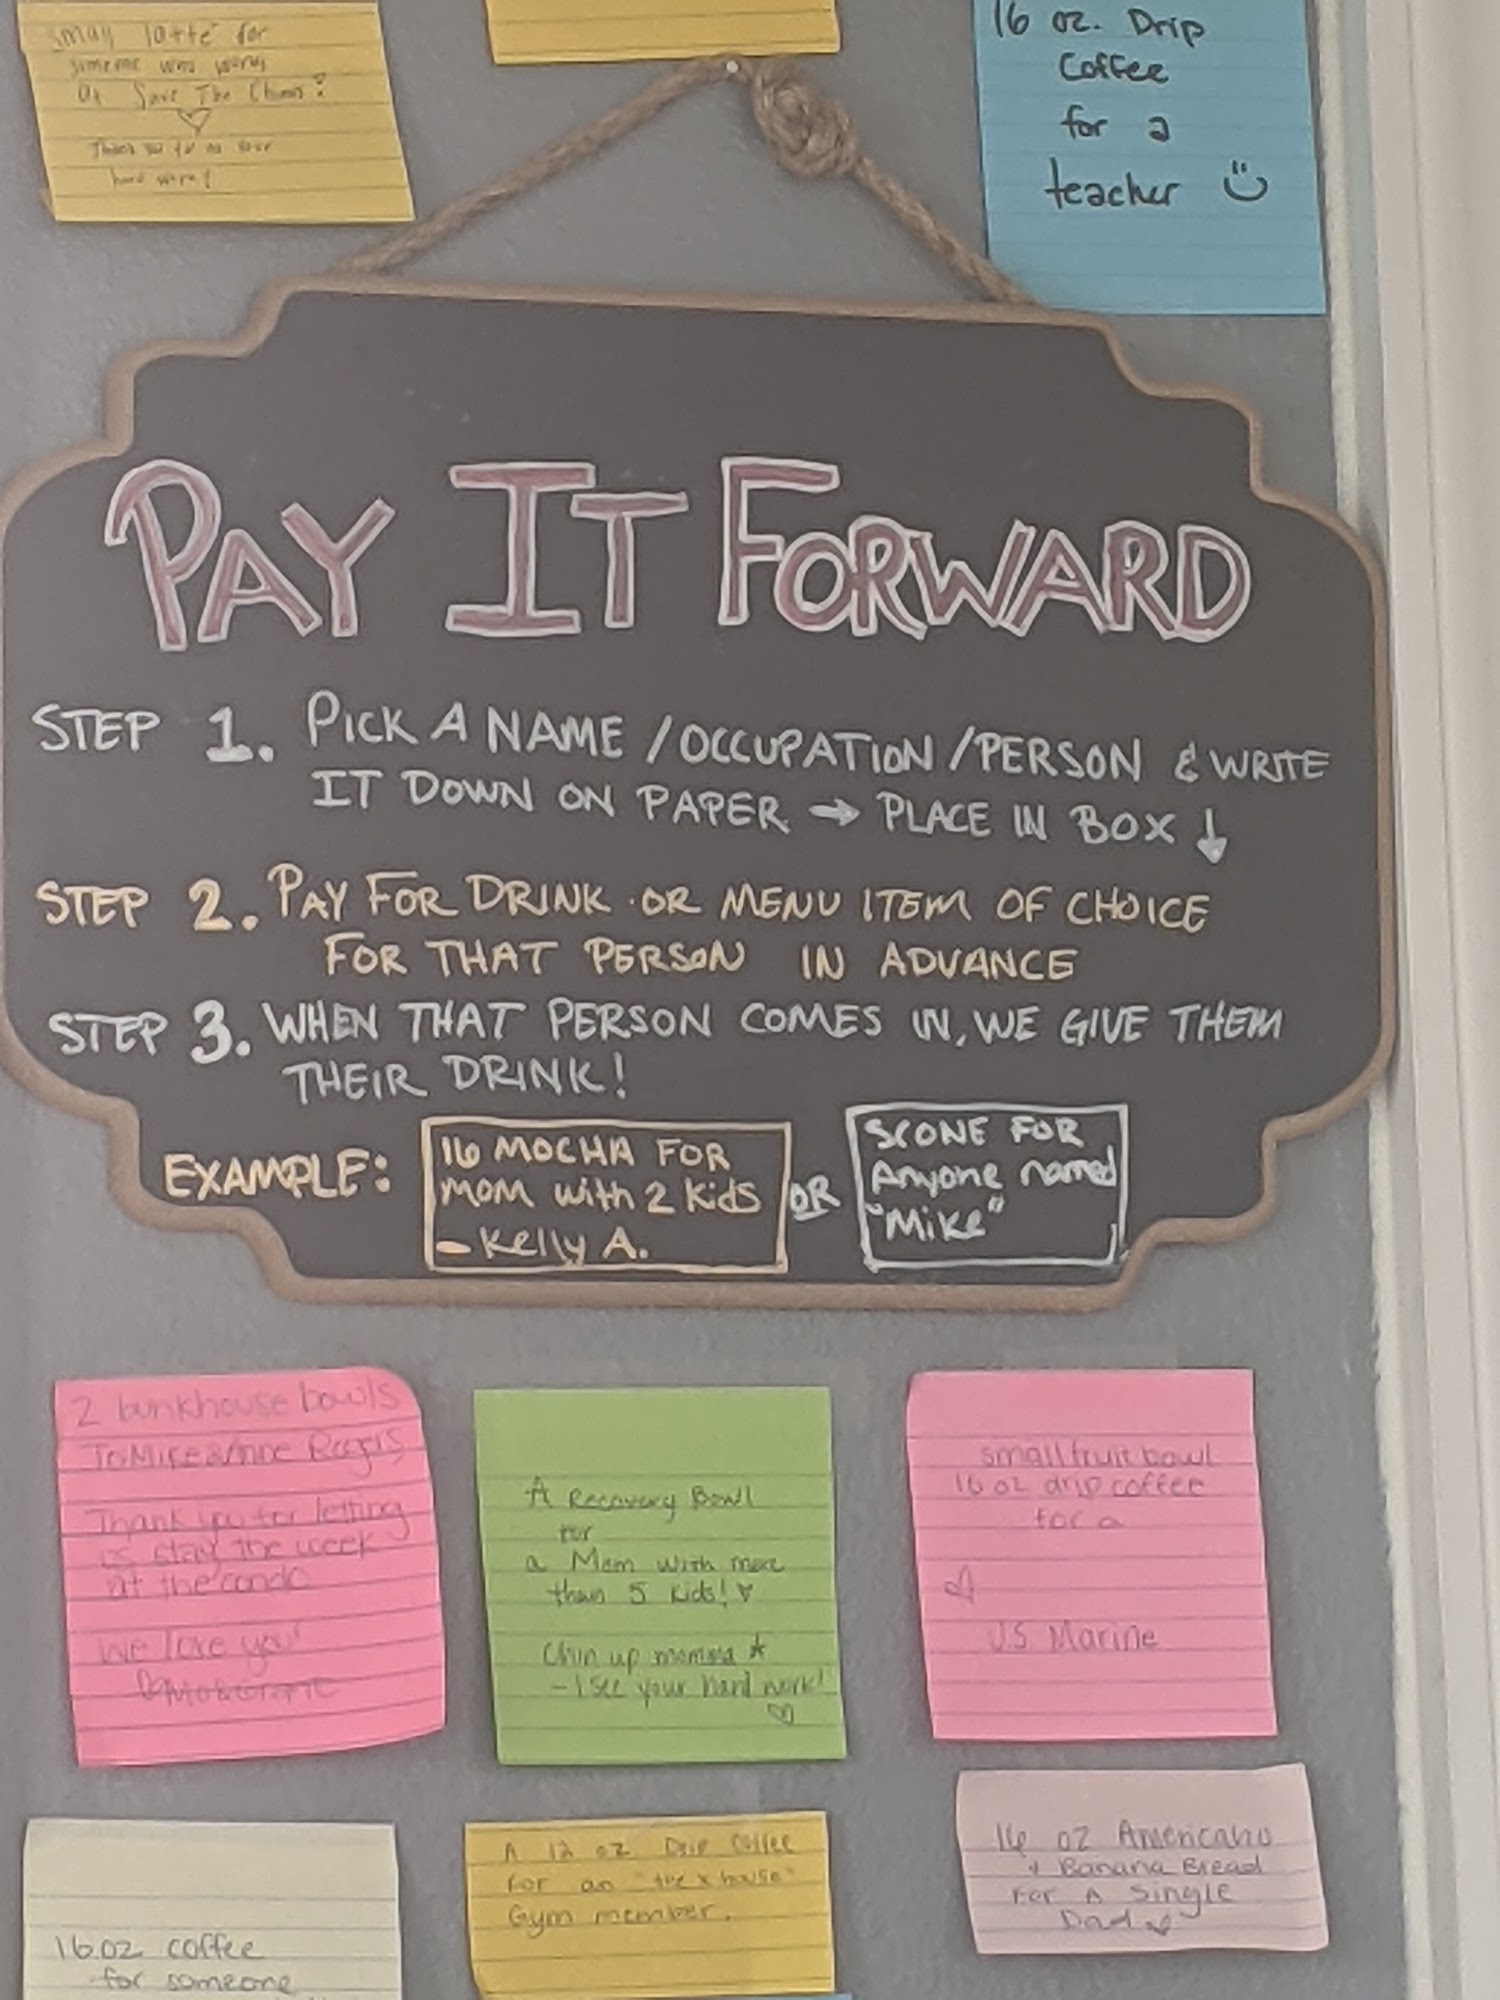 small latte for
someone who works
at Save The Chimps!
Thank you for all your
hard work!
16 oz. Drip
Coffee
for a
teacher
PAY IT FORWARD
STEP 1. PICK A NAME / OCCUPATION / PERSON & WRITE
IT DOWN ON PAPER → PLACE IN BOX ↓
STEP 2. PAY FOR DRINK OR MENU ITEM OF CHOICE
FOR THAT PERSON IN ADVANCE
STEP 3. WHEN THAT PERSON COMES IN, WE GIVE THEM
THEIR DRINK!
EXAMPLE:
16 MOCHA FOR
MOM with 2 kids
- Kelly A.
OR
SCONE FOR
Anyone named
"Mike"
2 bunkhouse bowls
To Mike & Anne Rogers
Thank you for letting
us stay the week
at the condo
We love you!
A Recovery Bowl
for
a Mom with more
than 5 kids! ♥
Chin up momma ★
- I see your hard work!
♡
small fruit bowl
16 oz drip coffee
for a
♡
U.S Marine
16 oz coffee
for someone
A 12 oz Drip Coffee
for an "the x house"
Gym member.
16 oz Americano
+ Banana Bread
For A Single
Dad ♥